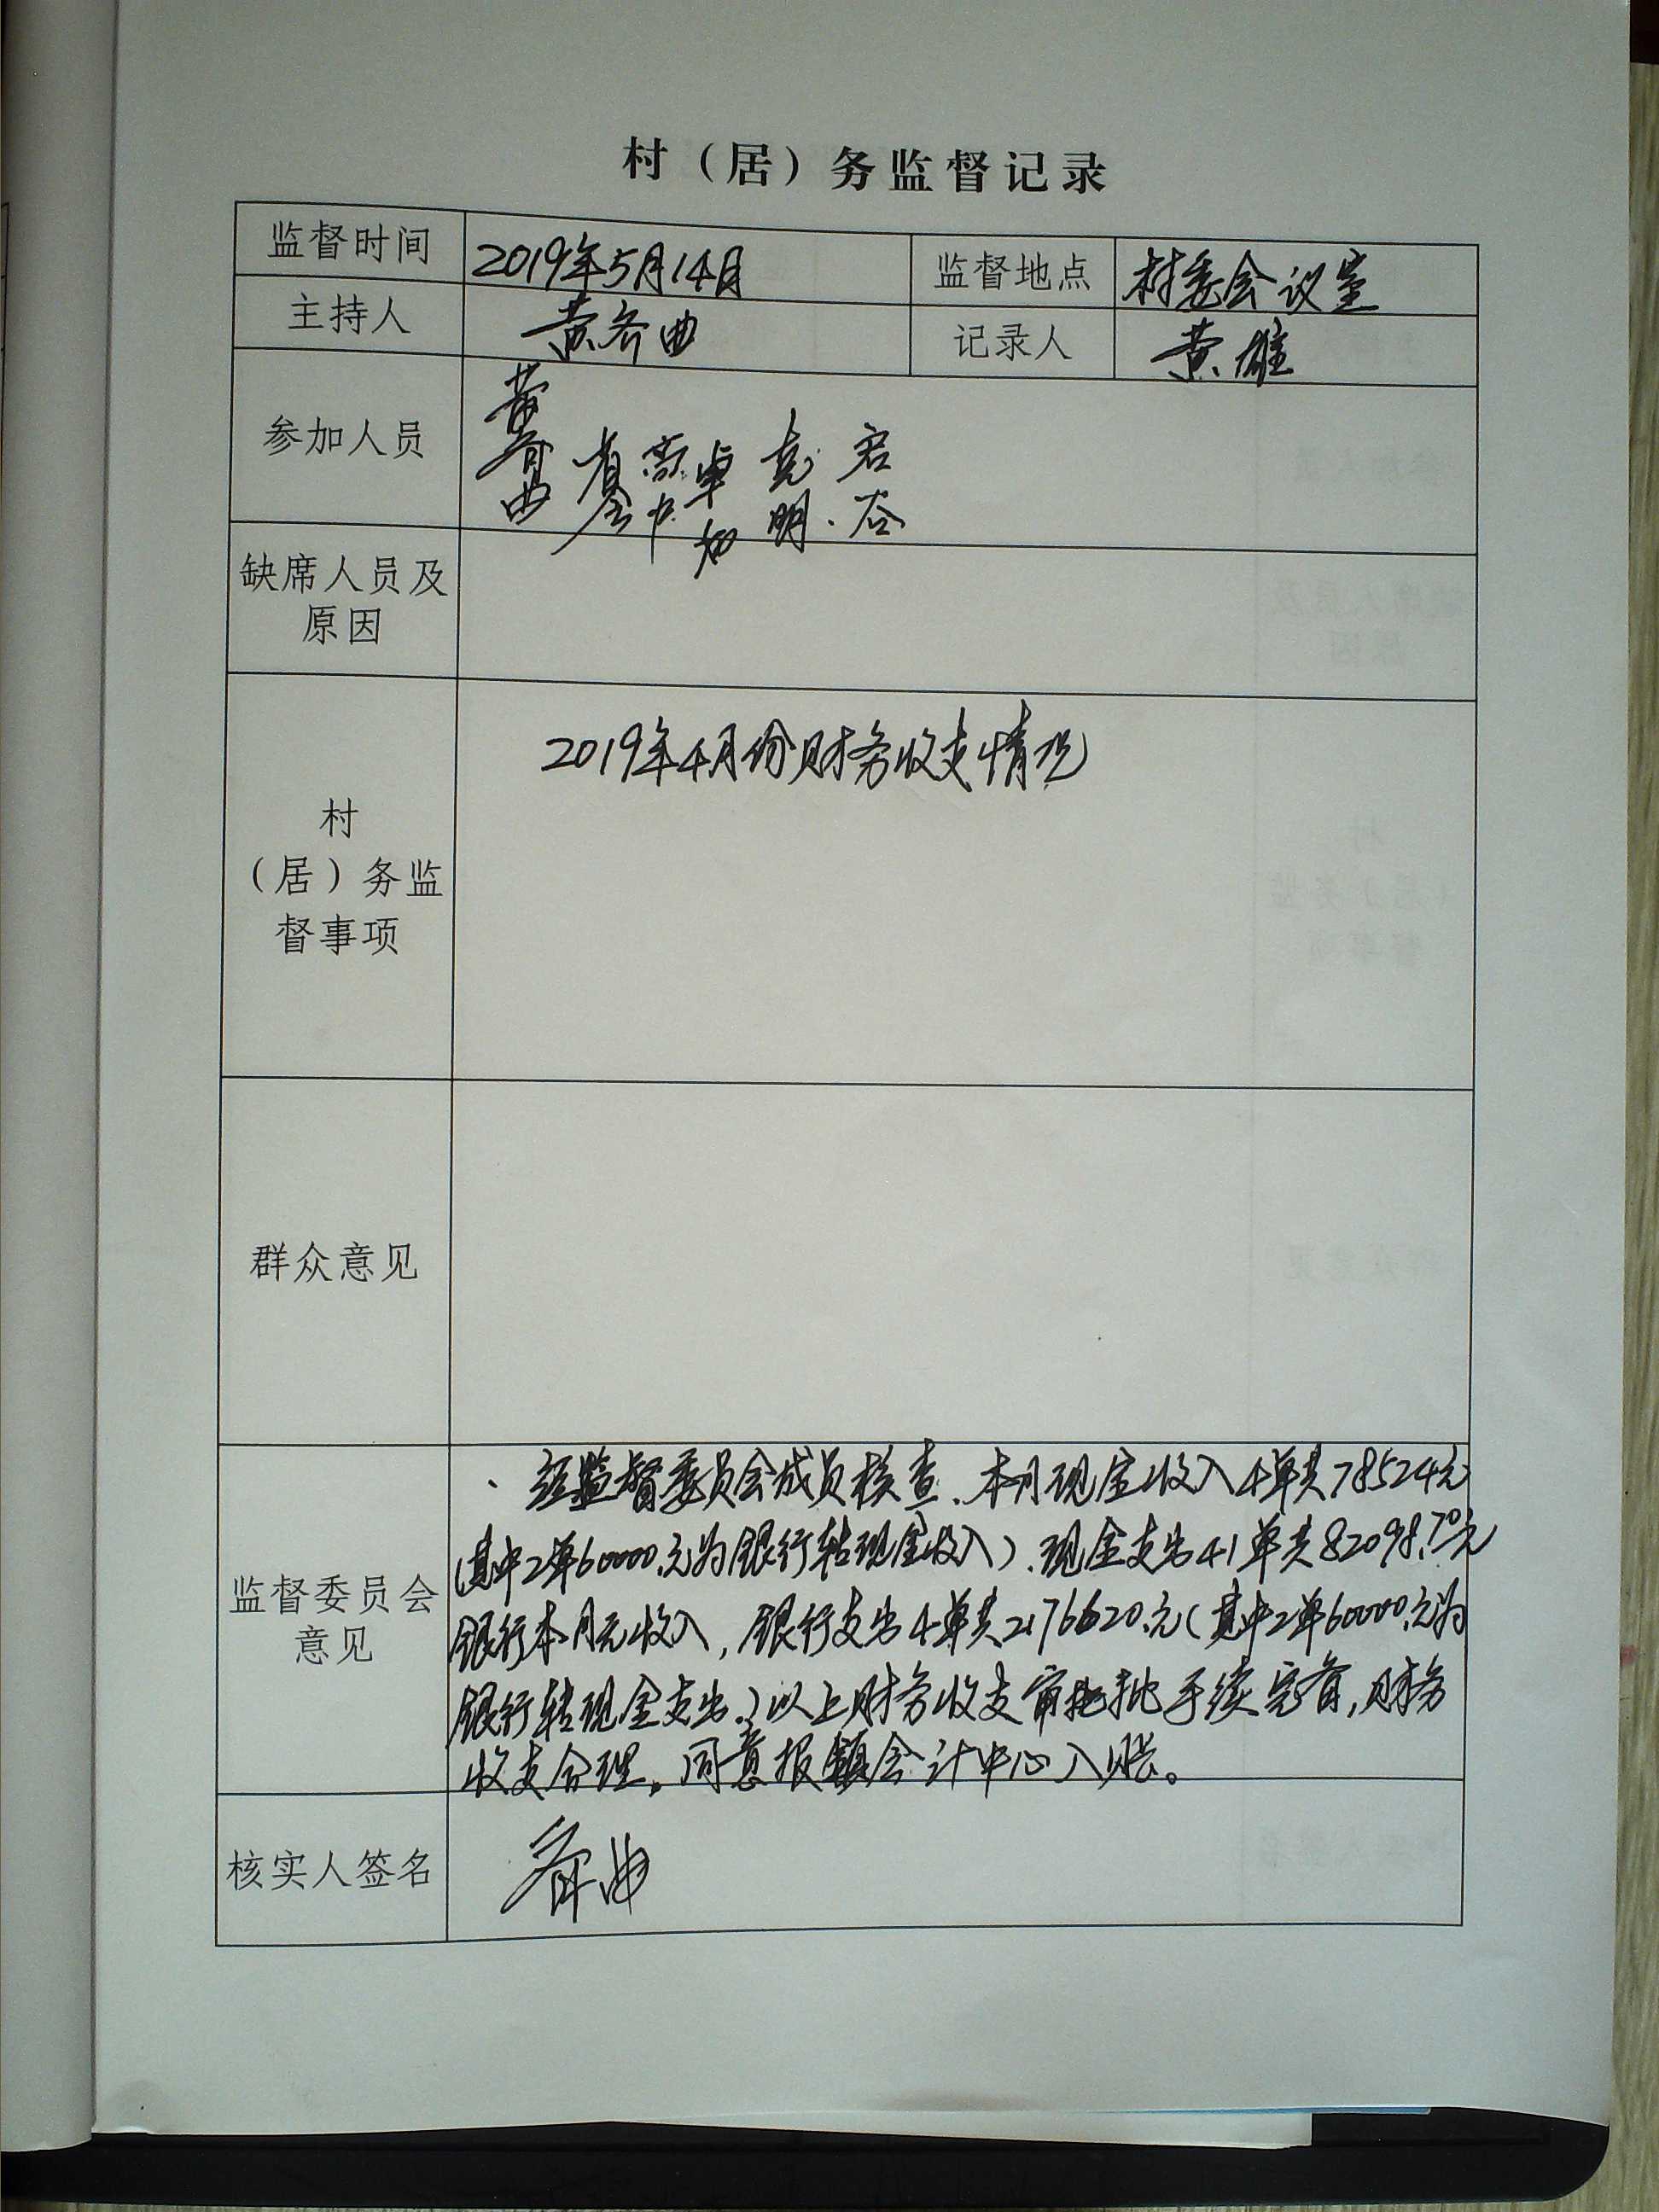 村（居）务监督记录
监督时间 2019年5月14日 监督地点 村委会议室
主持人 黄齐曲 记录人 黄雄
参加人员
缺席人员及
原因
2019年4月份财务收支情况
村
（居）务监
督事项
群众意见
经监督委员会成员核查、本月现金收入4单共78524元
(其中2单60000.元为银行转现金收入)、现金支出41单共82098.70元
监督委员会
银行本月无收入，银行支出4单共2176620.元(其中2单60000.元为
意见
银行转现金支出.)以上财务收支审批手续完备,财务
收支合理。同意报镇会计中心入账。
核实人签名